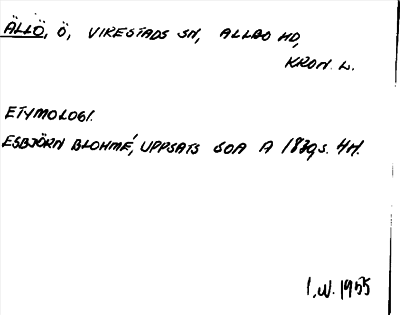 ÄLLÖ, Ö, VIRESTADS SN, ALLBO HD,
KRON. L.
ETYMOLOGI.
ESBJÖRN BLOHMÉ, UPPSATS SOA A 1839 s. 4 ff.
I.W. 1955